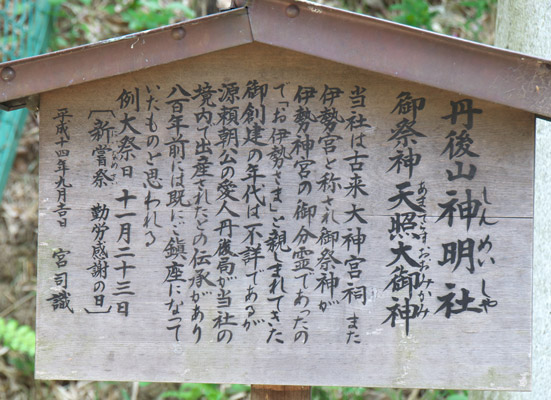 丹後山神明社
しんめいしゃ
御祭神 天照大御神
あまてらすおおみかみ
当社は古来大神宮祠また
伊勢宮と称され御祭神が
伊勢神宮の御分霊であったの
で「お伊勢さま」と親しまれてきた
御創建の年代は不詳であるが
源頼朝公の愛人丹後局が当社の
境内で出産されたとの伝承があり
八百年前には既にご鎮座になって
いたものと思われる
例大祭日 十一月二十三日
〔新嘗祭 勤労感謝の日〕
にいなめさい
平成十四年九月吉日 宮司識